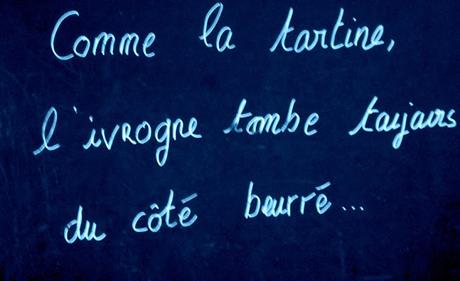 Comme la tartine,
l'ivrogne tombe toujours
du côté beurré...